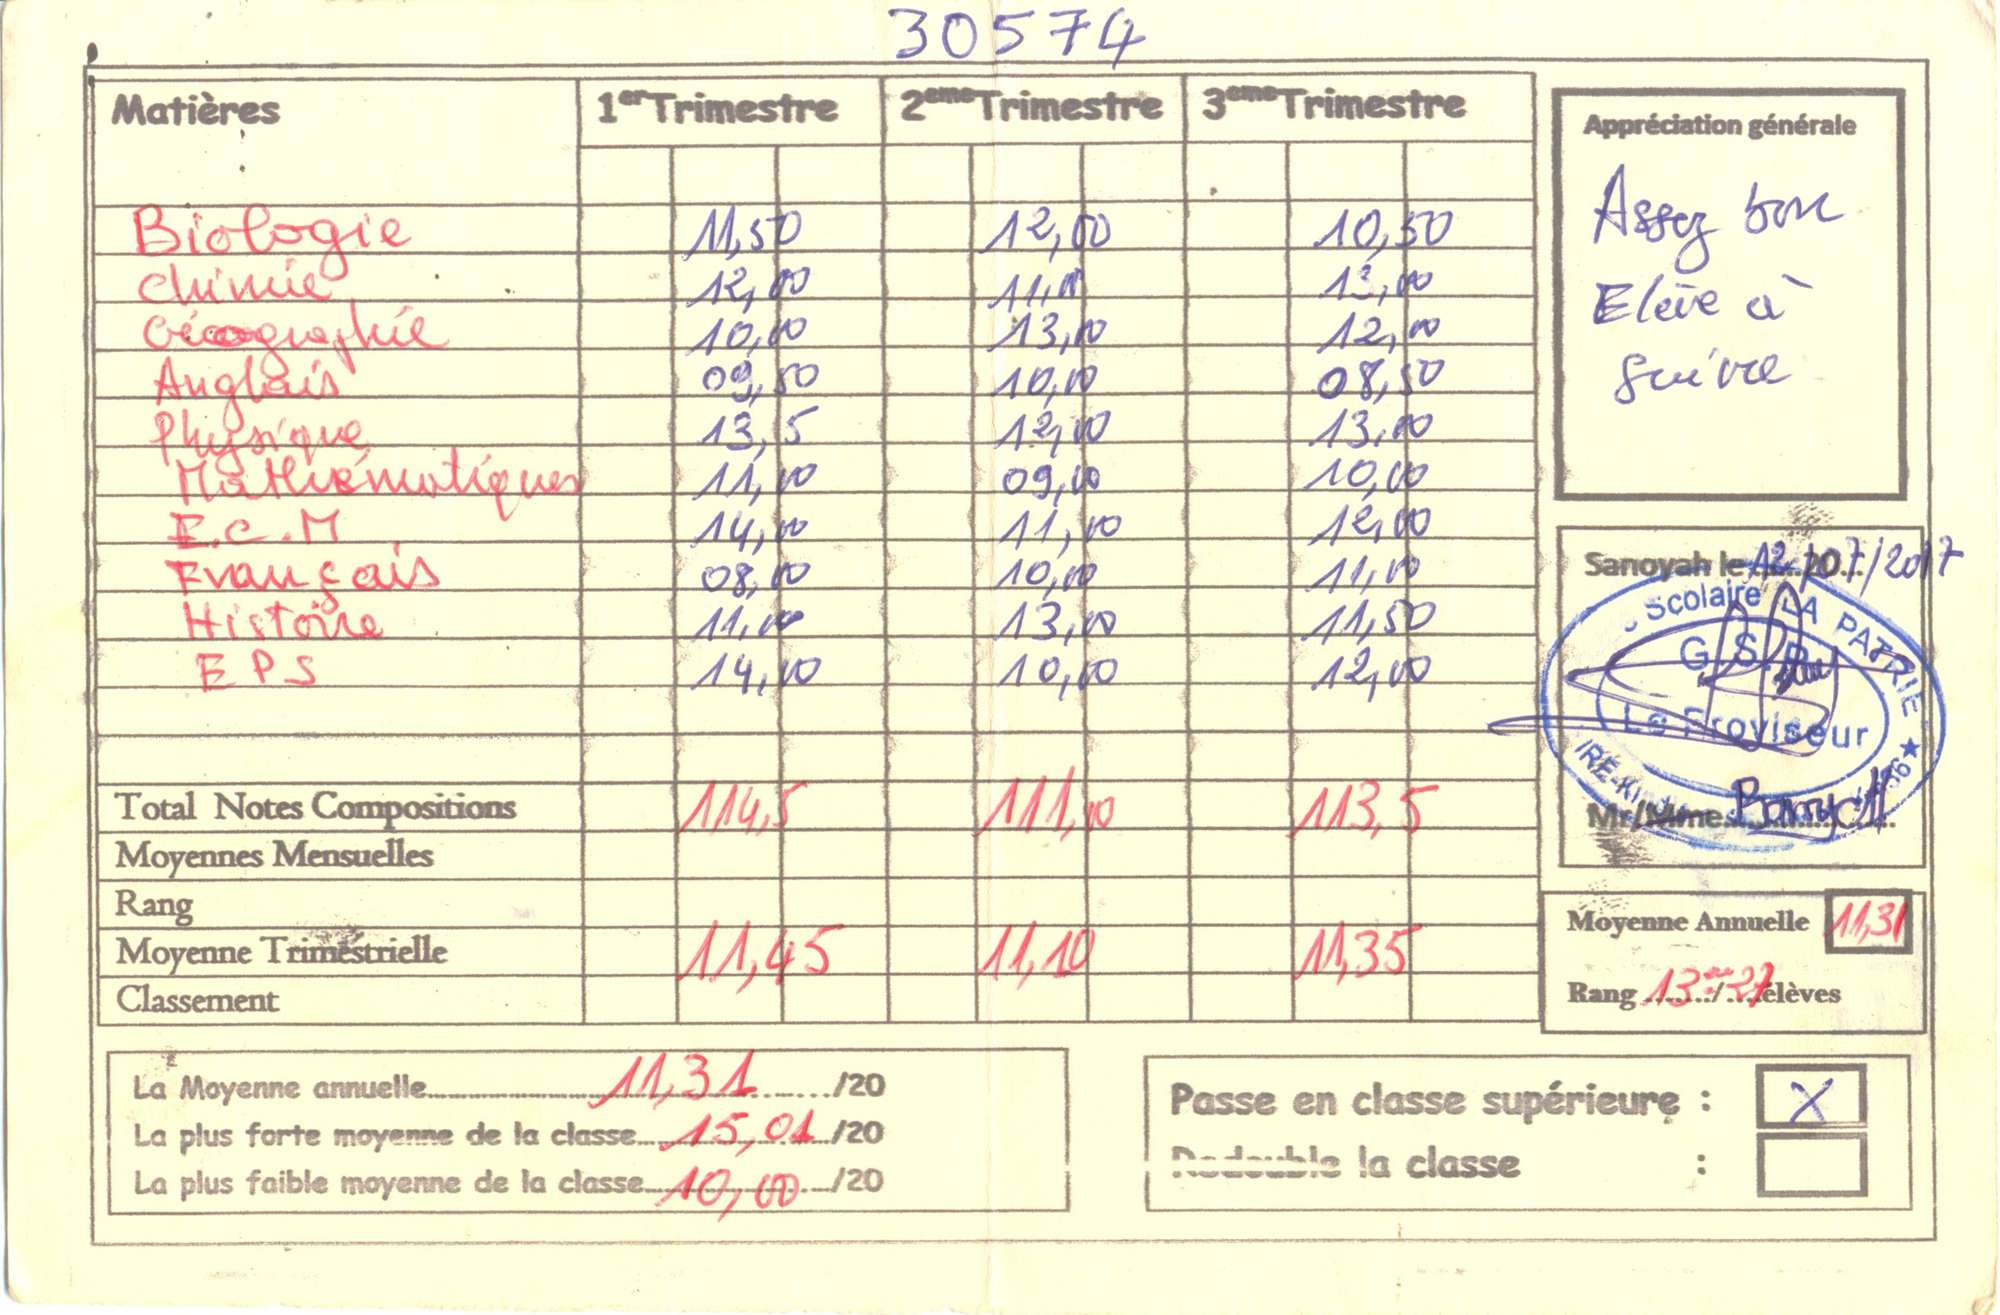 30574
Matières 1er Trimestre 2eme Trimestre 3eme Trimestre
Biologie 11,50 12,00 10,50
Chimie 12,00 11,00 13,00
Géographie 10,00 13,00 12,00
Anglais 09,50 10,00 08,50
Physique 13,5 12,00 13,00
Mathématiques 11,00 09,00 10,00
E.C.M 14,00 11,00 12,00
Français 08,00 10,00 11,00
Histoire 11,00 13,00 11,50
E P S 14,00 10,00 12,00
Total Notes Compositions 114,5 111,00 113,5
Moyennes Mensuelles
Rang
Moyenne Trimestrielle 11,45 11,10 11,35
Classement
Appréciation générale
Assez bon
Elève à
suivre
Sanoyah le 12/07/2017
Scolaire LA PATRIE
G.S.P
Le Proviseur
Mr/Mme
Moyenne Annuelle 11,31
Rang 13ème/27 élèves
La Moyenne annuelle 11,31 /20
La plus forte moyenne de la classe 15,01 /20
La plus faible moyenne de la classe 10,00 /20
Passe en classe supérieure : X
Redouble la classe :